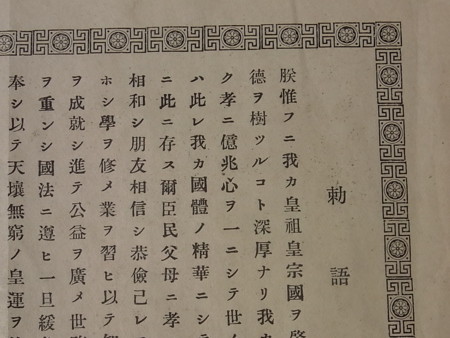 勅語
朕惟フニ我カ皇祖皇宗國ヲ
德ヲ樹ツルコト深厚ナリ我カ
ク孝ニ億兆心ヲ一ニシテ世
ハ此レ我カ國體ノ精華ニシテ
ニ此ニ存ス爾臣民父母ニ孝
相和シ朋友相信シ恭儉己レ
ホシ學ヲ修メ業ヲ習ヒ以テ
ヲ成就シ進テ公益ヲ廣メ世
ヲ重ンシ國法ニ遵ヒ一旦緩
奉シ以テ天壤無窮ノ皇運ヲ